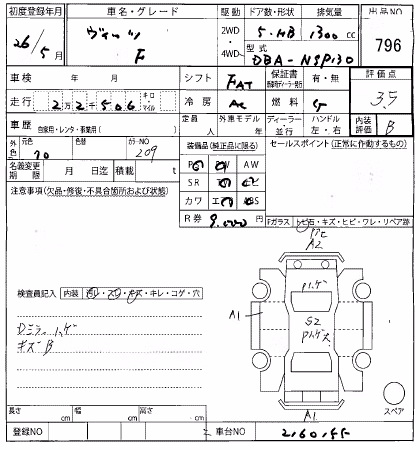 初度登録年月 車名・グレード 駆動 ドア数・形状 排気量 出品NO
26年5月 ヴィッツ F 2WD 4WD 5・HB 1300cc 796
型式 DBA-NSP130
車検 年 月 シフト FAT 保証書 有・無 評価点 3.5
走行 2万2千506 キロ・マイル 冷房 AC 燃料 G
車歴 自家用・レンタ・事業用( ) 定員 人 外車モデル 年 ディーラー 並行 ハンドル 左・右 内装評価 B
外色 元色 色替 カラーNO 209
装備品(純正品に限る) セールスポイント(正常に作動するもの)
名義変更期限 月 日迄 積載 t
PS PW AW
SR
カワ
注意事項(欠品・修復・不具合箇所および状態)
R券 9,000円
Fガラス トビ石・キズ・ヒビ・ワレ・リペア跡
A2
検査員記入 内装 汚レ・スレ・キズ・キレ・コゲ・穴
Dミラーハゲ
キズB
A1
ハゲ
S2
A1
スペア
長さ cm 幅 cm 高さ cm
登録NO 車台NO 2160155